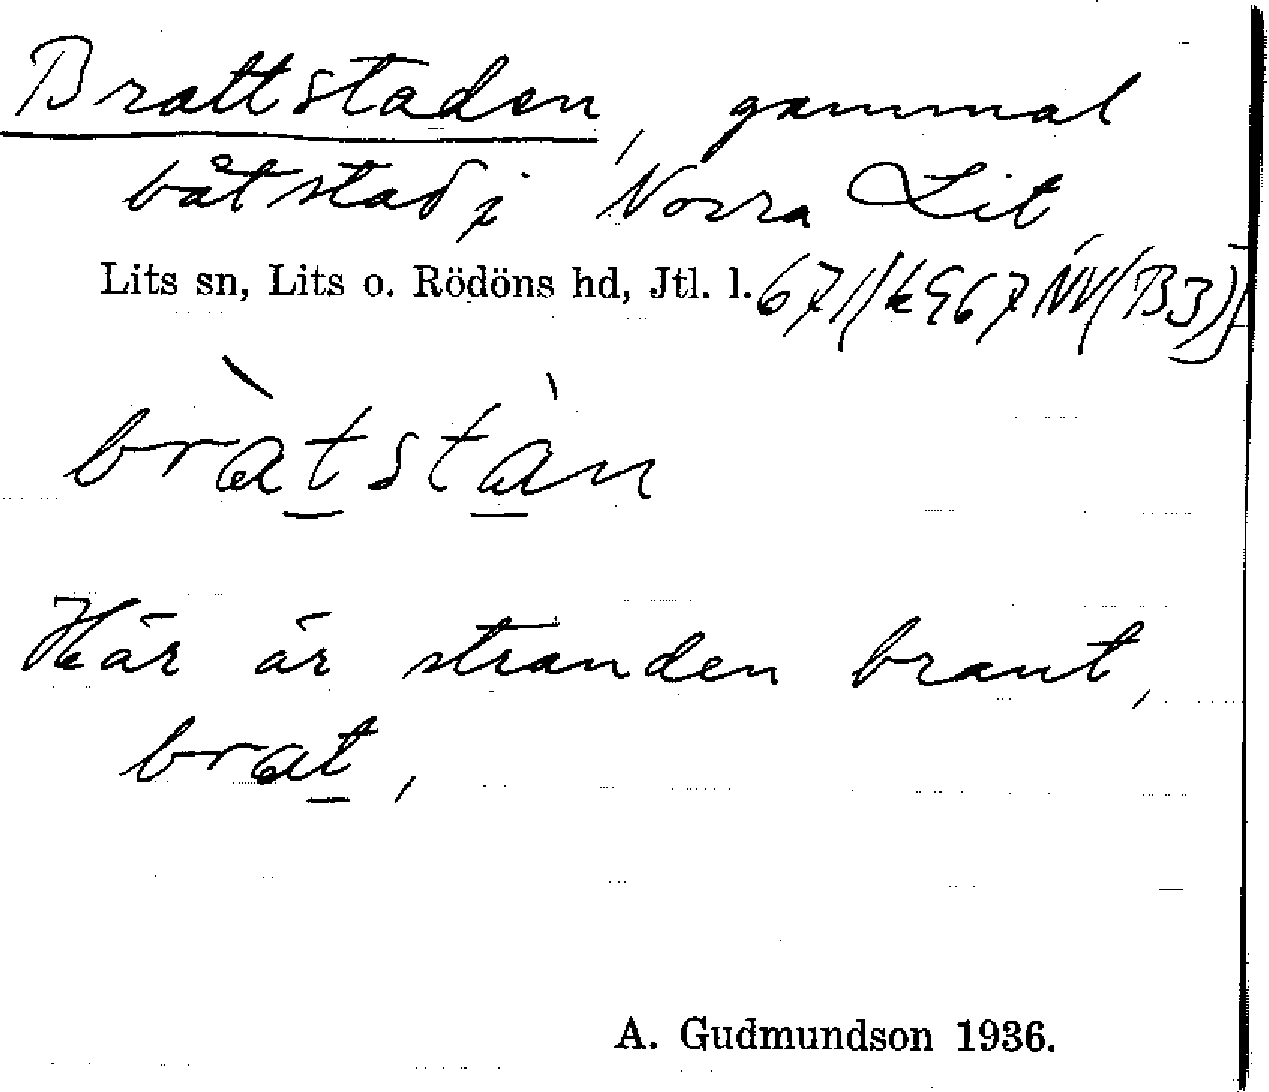 Brattstaden, gammal
båtstad i Norra Lit
Lits sn, Lits o. Rödöns hd, Jtl. l.
bràtstàn
Här är stranden brant,
brat,
A. Gudmundson 1936.